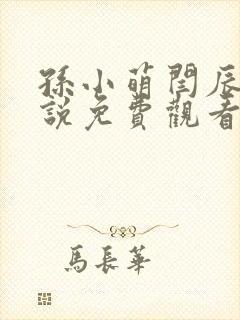 孫小萌閆辰
說免費觀看
馬長華